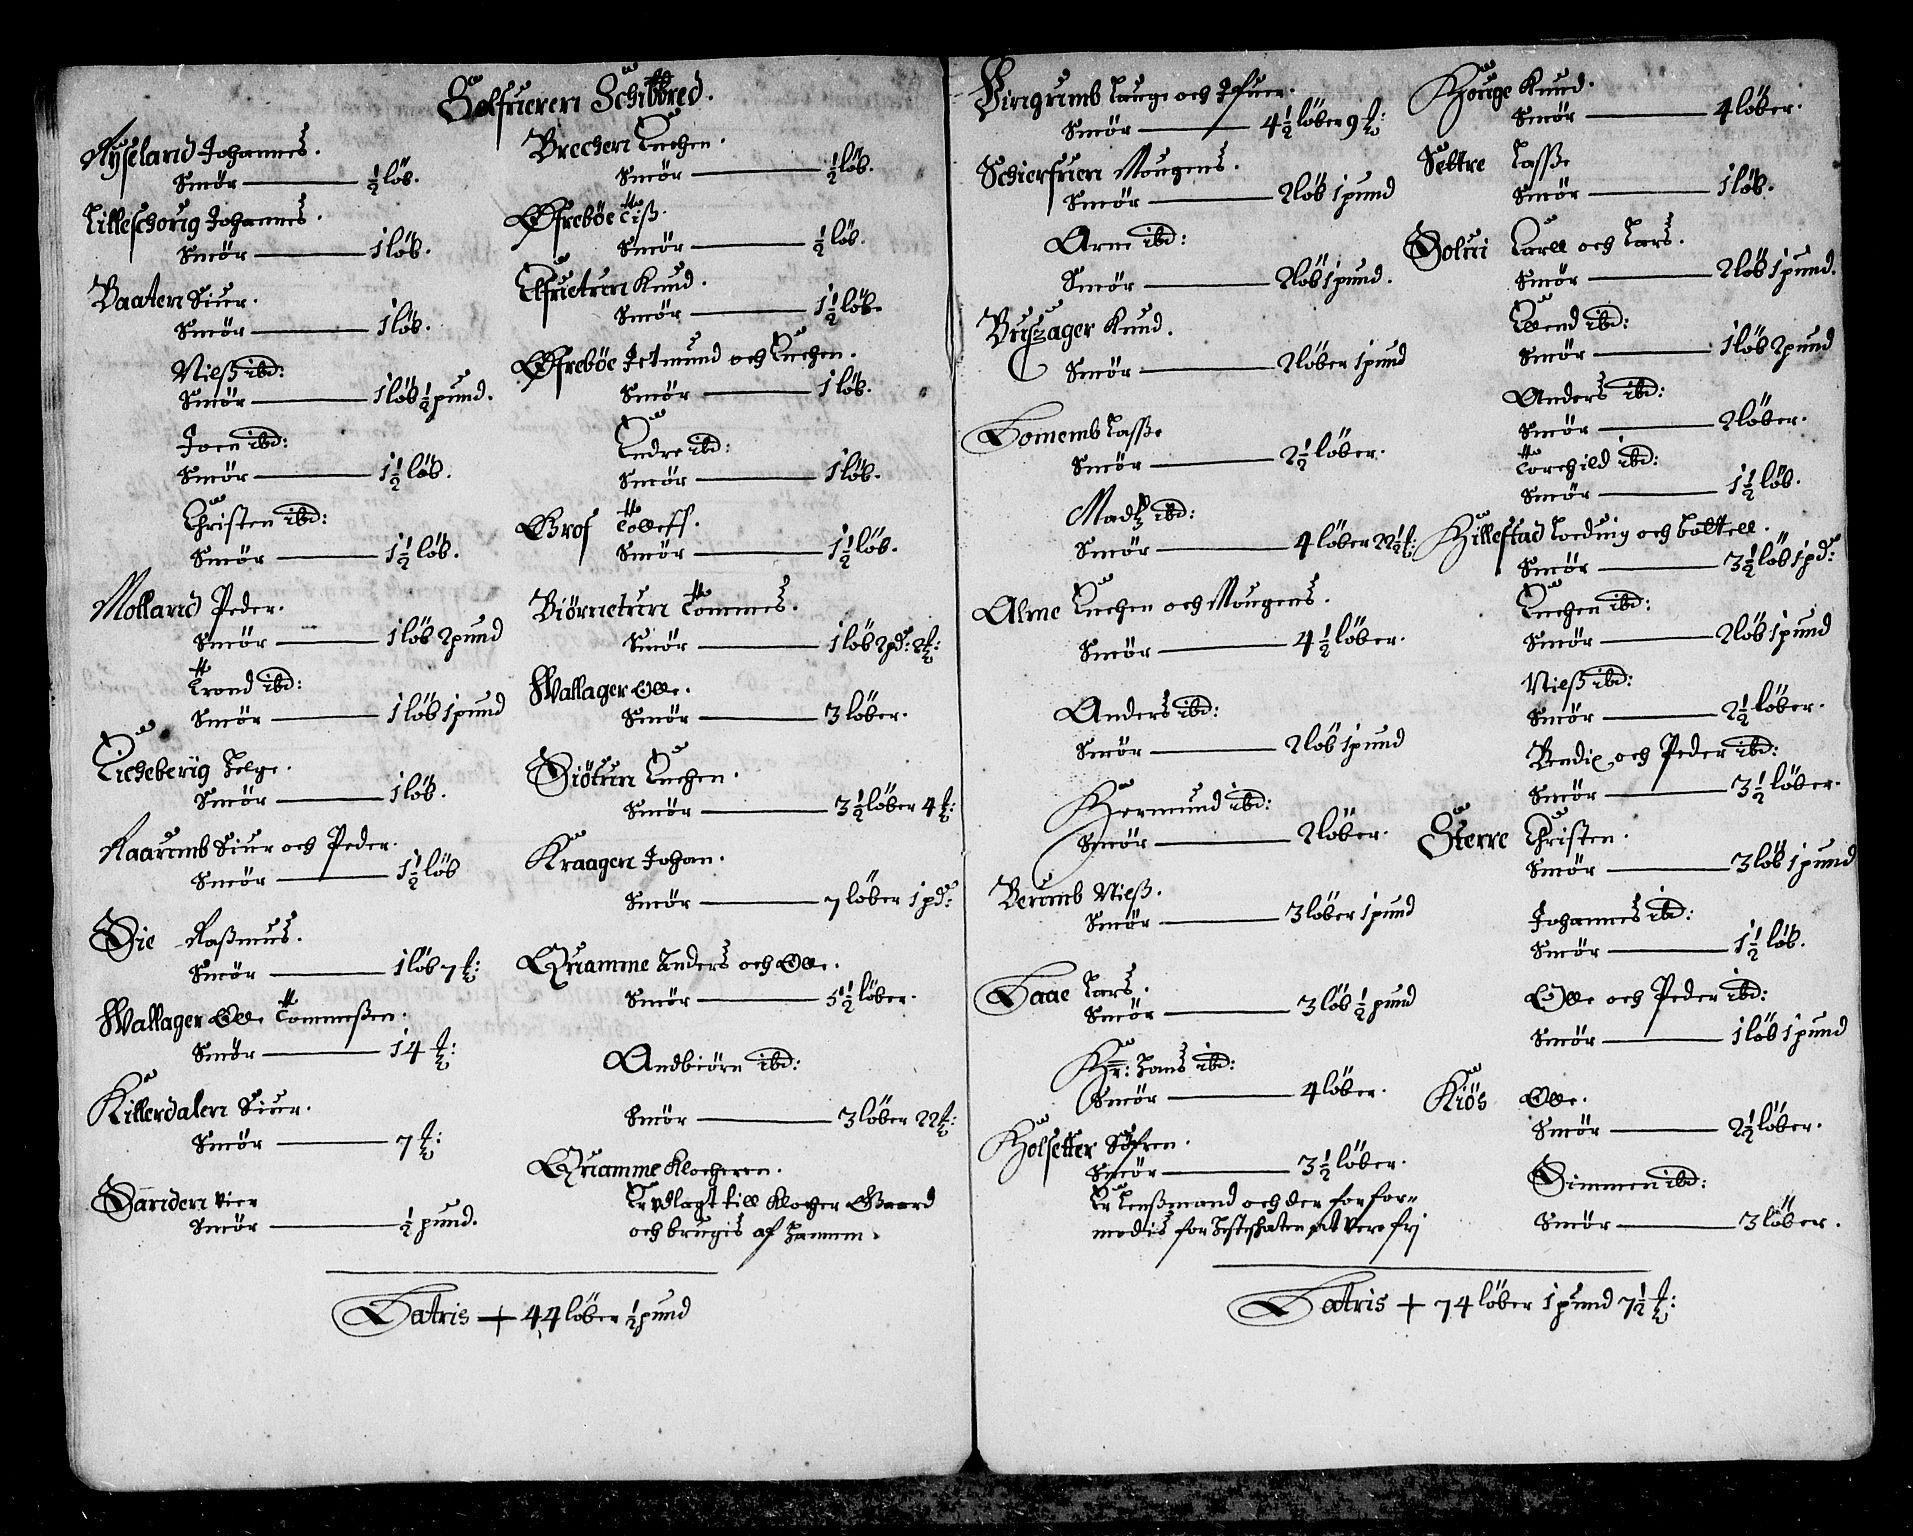 Solfrieren Schibbred.
Nyseland Johannes.
Smör — ½ löb.
Lilleschorig Johannes.
Smör — 1 löb.
Vaaten Siur.
Smör — 1 löb.
Nielß ibd:
Smör — 1 löb ½ pund.
Joen ibd:
Smör — 1½ löb.
Christen ibd:
Smör — 1½ löb.
Molland Peder.
Smör — 1 löb 2 pund
Trond ibd:
Smör — 1 löb 1 pund
Licheberig Helge.
Smör — 1 löb.
Raarumb Siur och Peder.
Smör — 1½ löb
Sie Raßmus.
Smör — 1 löb 7 ℔:
Wallager Olle Tommeßen.
Smör — 14 ℔:
Killerdalen Siur.
Smör — 7 ℔:
Sanden vier
Smör — ½ pund.
Brechen Enchen.
Smör — ½ löb.
Öfreböe Tiß.
Smör — ½ löb.
Elfuetun Knud.
Smör — 1½ löb.
Öfreböe Jetmund och Enchen.
Smör — 1 löb.
Endre ibd:
Smör — 1 löb.
Grof Tolleff.
Smör — 1½ löb.
Biörnetun Tommes.
Smör — 1 löb 2 pd: 2 ℔:
Wallager Olle.
Smör — 3 löber.
Siötun Enchen.
Smör — 3½ löber 4 ℔:
Kraagen Johan.
Smör — 7 löber 1 pd:
Quamme Anders och Olle.
Smör — 5½ löber.
Andbiörn ibd:
Smör — 3 löber 22 ℔:
Quamme Klocheren.
Er udlagt till Klocher Gaard
och brugis af hannem.
Lateris + 44 löber ½ pund
Smör — 4½ löber 9 ℔:
Schierfuen Mougens.
Smör — 2 löb 1 pund
Arne ibd:
Smör — 2 löb 1 pund.
Bruszager Knud.
Smör — 2 löber 1 pund
Homemb Lasße
Smör — 2½ löber.
Madtz ibd:
Smör — 4 löber 22½ ℔:
Alme Enchen och Mougens.
Smör — 4½ löber.
Anders ibd:
Smör — 2 löb 1 pund
Hermund ibd:
Smör — 2 löber.
Berumb Nielß.
Smör — 3 löber 1 pund
Haae Lars.
Smör — 3 löb ½ pund
Hr: Hans ibd:
Smör — 4 löber.
Holsetter Söfren.
Smör — 3½ löber.
Er Lenßmand och der for for-
modis for Leschatten at vere frj
Houge Knud.
Smör — 4 löber.
Settre Lasße
Smör — 1 löb.
Solui Carll och Lars.
Smör — 2 löb 1 pund.
Ellend ibd:
Smör — 1 löb 2 pund
Anders ibd:
Smör — 2 löber.
Torchild ibd:
Smör — 1½ löb.
Hillestad
Smör — 3½ löb 1 pd:
Enchen ibd:
Smör — 2 löb 1 pund
Nielß ibd:
Smör — 2½ löber.
Bendix och Peder ibd:
Smör — 3½ löber.
Sterre Christen.
Smör — 3 löb 1 pund
Johannes ibd:
Smör — 1½ löb.
Olle och Peder ibd:
Smör — 1 löb 1 pund
Kiös Olle.
Smör — 2½ löber.
Simmen ibd:
Smör — 3 löber.
Lateris + 74 löber 1 pund 7½ ℔: